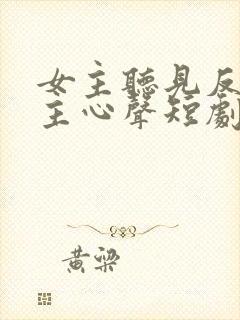 女主聽見反
主心聲短劇
黃梁